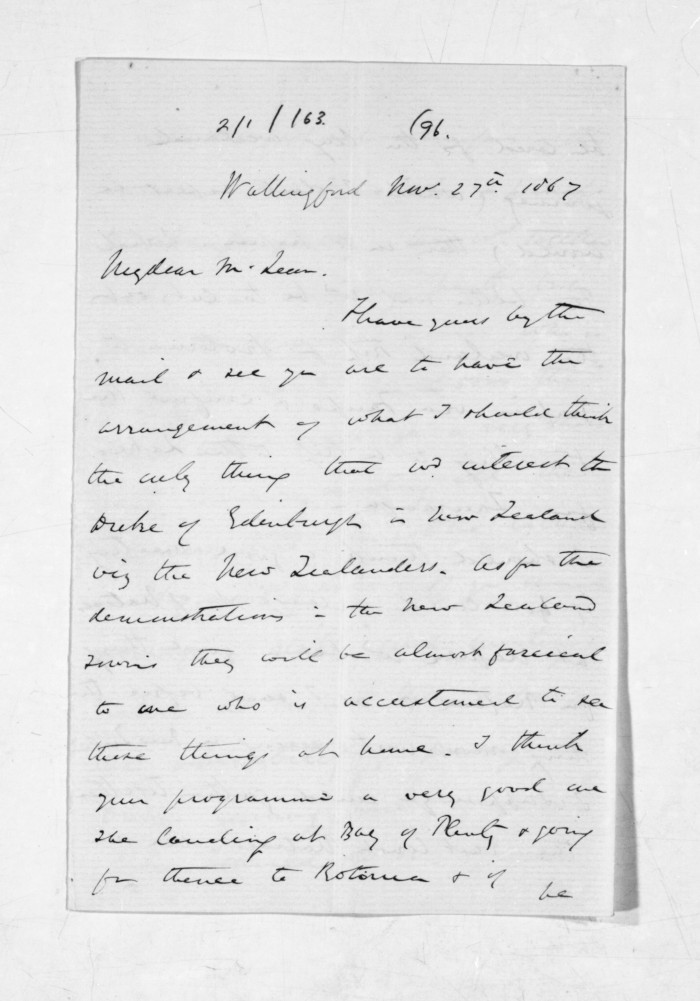 2/1/163. (96.
Wallingford Nov. 27th 1867
My dear McLean.
I have yours by the
mail & see you are to have the
arrangement of what I should think
the only thing that wd interest the
Duke of Edinburgh in New Zealand
viz the New Zealanders. As for the
demonstrations in the New Zealand
towns they will be almost farcical
to one who is accustomed to see
these things at home. I think
your programme a very good one
the landing at Bay of Plenty & going
fm thence to Rotorua & if he